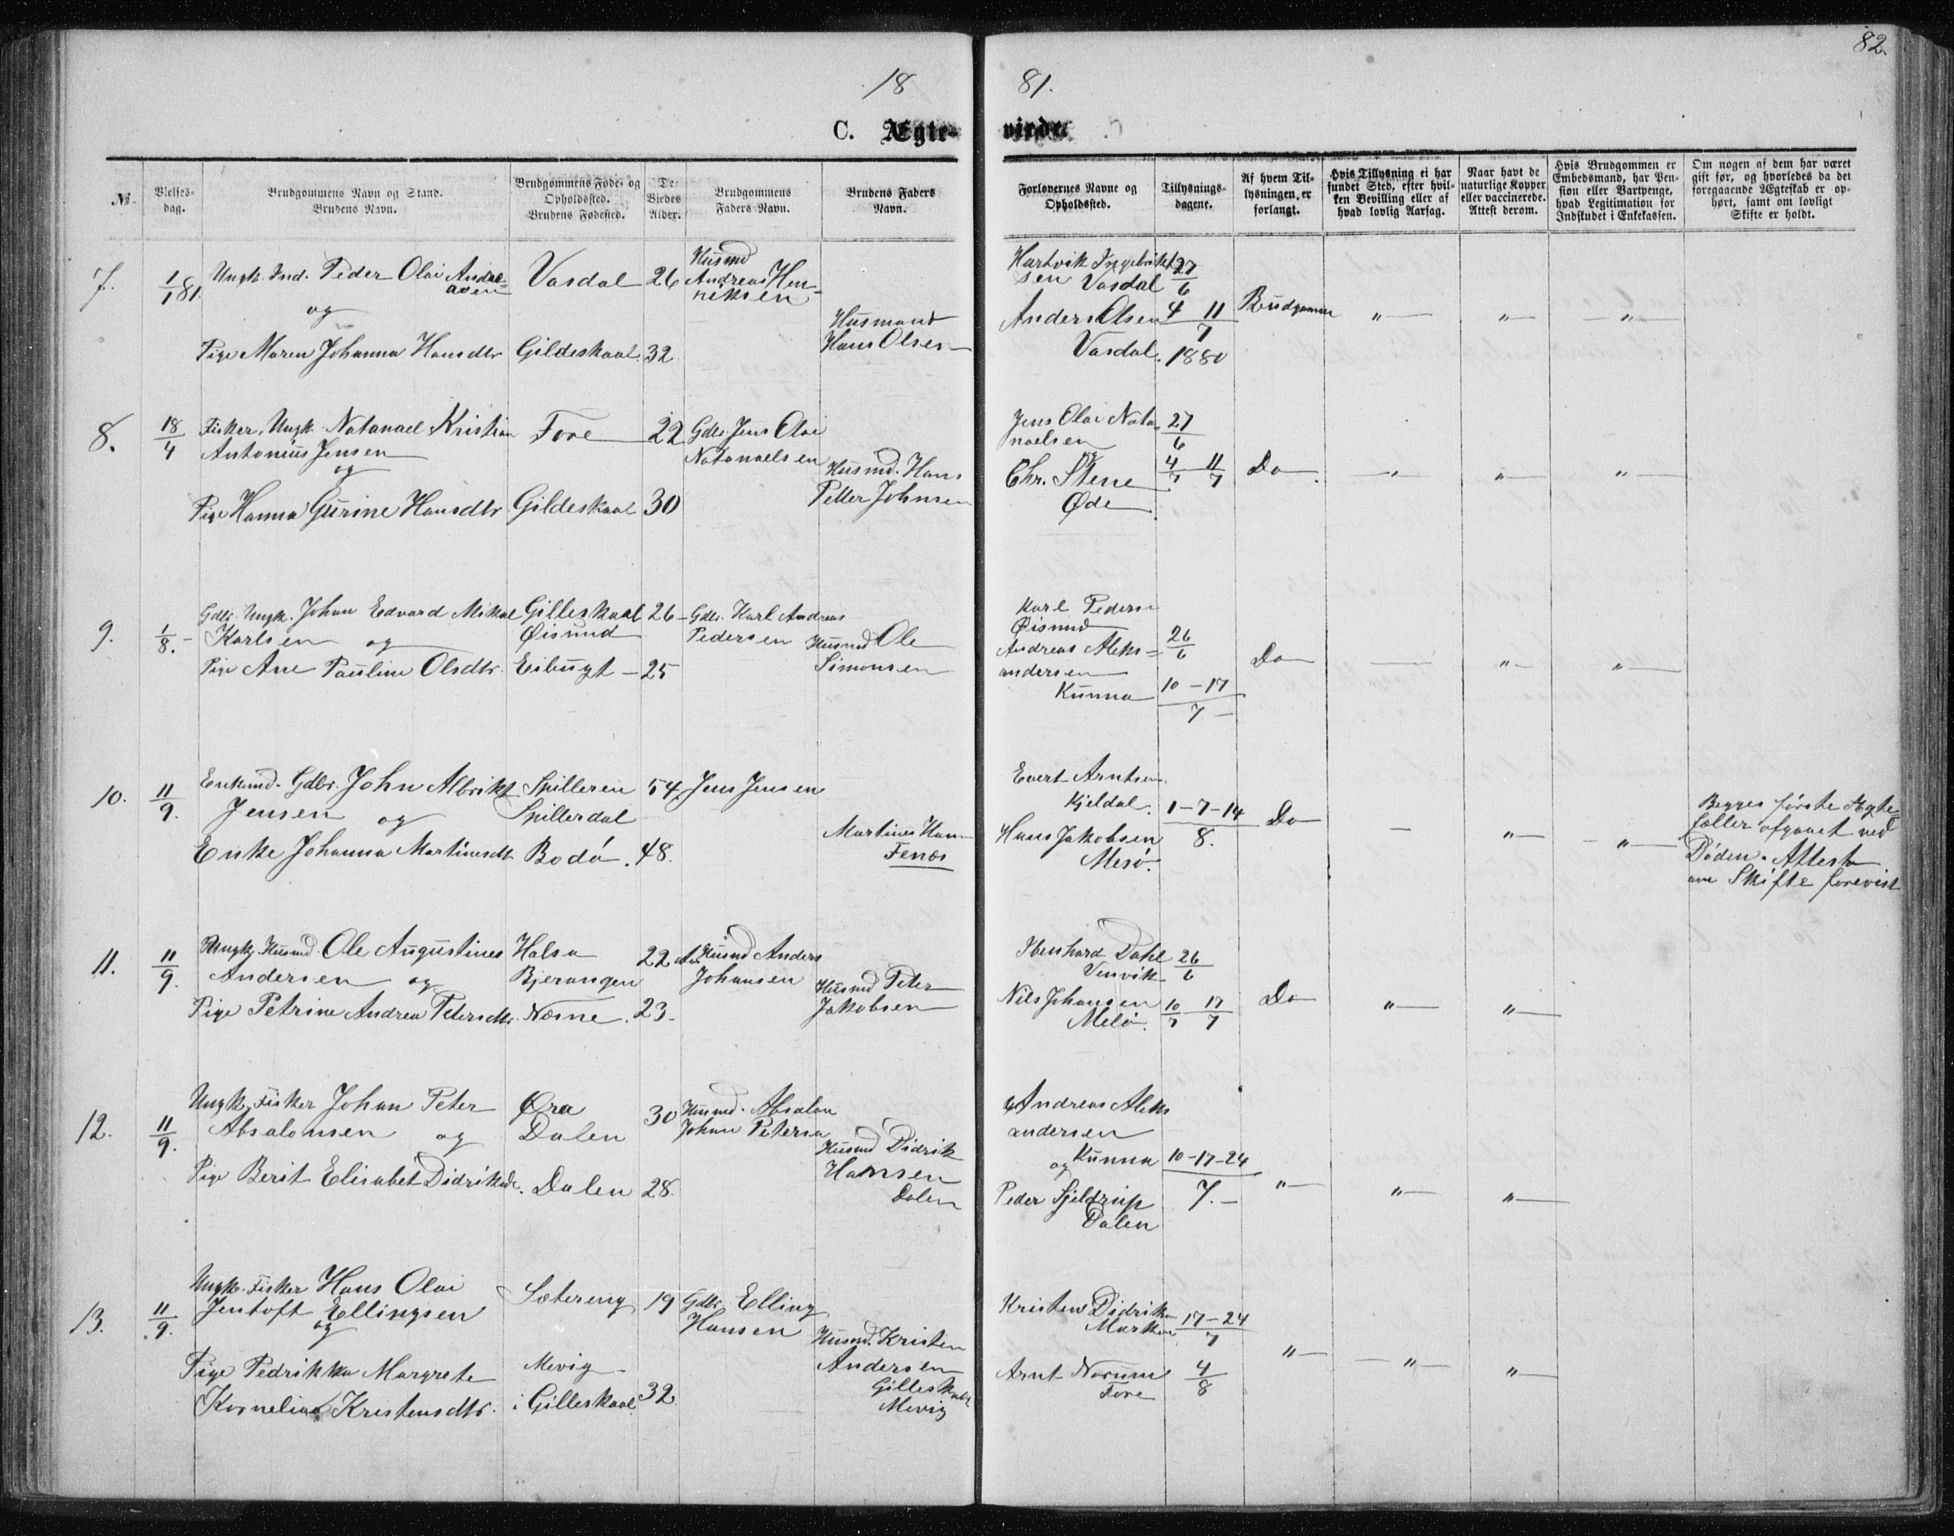 82.
18 81.
C. Ægte- viede.
№
Vielses-dag.
Brudgommens Navn og Stand.
Brudens Navn.
Brudgommens Føde- og Opholdsted.
Brudens Fødested.
De Viedes Alder.
Brudgommens Faders Navn.
Brudens Faders Navn.
Forlovernes Navne og Opholdsted.
Tillysnings-dagene.
Af hvem Tillysningen er forlangt.
Hvis Tillysning ei har fundet Sted, efter hvilken Bevilling eller af hvad lovlig Aarsag.
Naar havt de naturlige Kopper eller vaccinerede. Attest derom.
Hvis Brudgommen er Embedsmand, har Pension eller Vartpenge, hvad Legitimation for Indskudet i Enkekassen.
Om nogen af dem har været gift før, og hvorledes da det foregaaende Ægteskab er ophørt, samt om lovligt Skifte er holdt.
7. 1/1 81. Ungk. Ind. Peder Olai Andreasen Vasdal 26 Husmd Andreas Henriksen
og
Pige Maren Johanna Hansdtr Gildeskaal 32. Husmand Hans Olsen
Hartvik Ingebriktsen Vasdal 27/6
Anders Olsen Vasdal. 4 11/7 1880 Brudgommen „ „ „
8. 18/4 Fisker, Ungk. Natanael Kristian Fore 22 Gdbr. Jens Olai
Antonius Jensen Natanaelsen
og
Pige Hanna Gurine Hansdtr Gildeskaal 30 Husmd. Hans Petter Johnsen
Jens Olai Natanaelsen 27/6
og
Chr. Stene Øde 4/7 11/7 Do „ „ „
9. 1/8. Gdbr. Ungk. Johan Edvard Mikal Gilleskaal 26 Gdbr. Karl Andreas
Karlsen og Øisund Pedersen
Pige Ane Pauline Olsdtr. Eibugt 25 Husmd Ole Simonsen
Karl Peders. Øisund 26/6
Andreas Aleksandersen Kunna 10-17/7 Do „ „
10. 11/9. Enkmd. Gdbr. John Albrikt Spilleren 54 Jens Jensen
Jensen og Spillerdal
Enke Johanna Martinesdt. Bodø. 48. Martines Han Fenæs
Evert Arntsen Kjeldal. 1-7-14/8.
Hans Jakobsen Mesø. Do „ „
Begges første Ægtefæller afgaaet ved Døden. Attest om Skifte forevist
11. 11/9. Ungk. Husmd. Ole Augustines Halsa 22 Husmd Anders
Andersen og Bjerangen Johansen
Pige Petrine Andrea Petersdtr. Næsne. 23. Husmd Peter Jakobsen
Ibenhard Dahl Venvik 26/6
Nils Johansen Melø. 10/7 17/7 Do „ „
12. 11/9. Ungk. Fisker Johan Peter Øra 30 Husmd. Absalon
Absalonsen og Dalen Johan Petersn
Pige Berit Elisabet Didriksd. Dalen 28. Husmd Didrik Hansen Dalen
Andreas Aleksandersen Kunna
og 10-17-24/7.
Peder Sjeldrup Dalen „ „ „
13. 11/9. Ungk. Fisker Hans Olai Sætereng 19 Gdbr. Elling
Jentoft Ellingsen Hansen
og
Pige Pedrikka Margrete Mevig
Kornelia Kristensdtr. i Gilleskaal 32 Husmd. Kristen Andersen Gilleskaal Mevig
Kristen Didrik Marken 17-24/7
Arnt Norum Fore 4/8 „ „ „